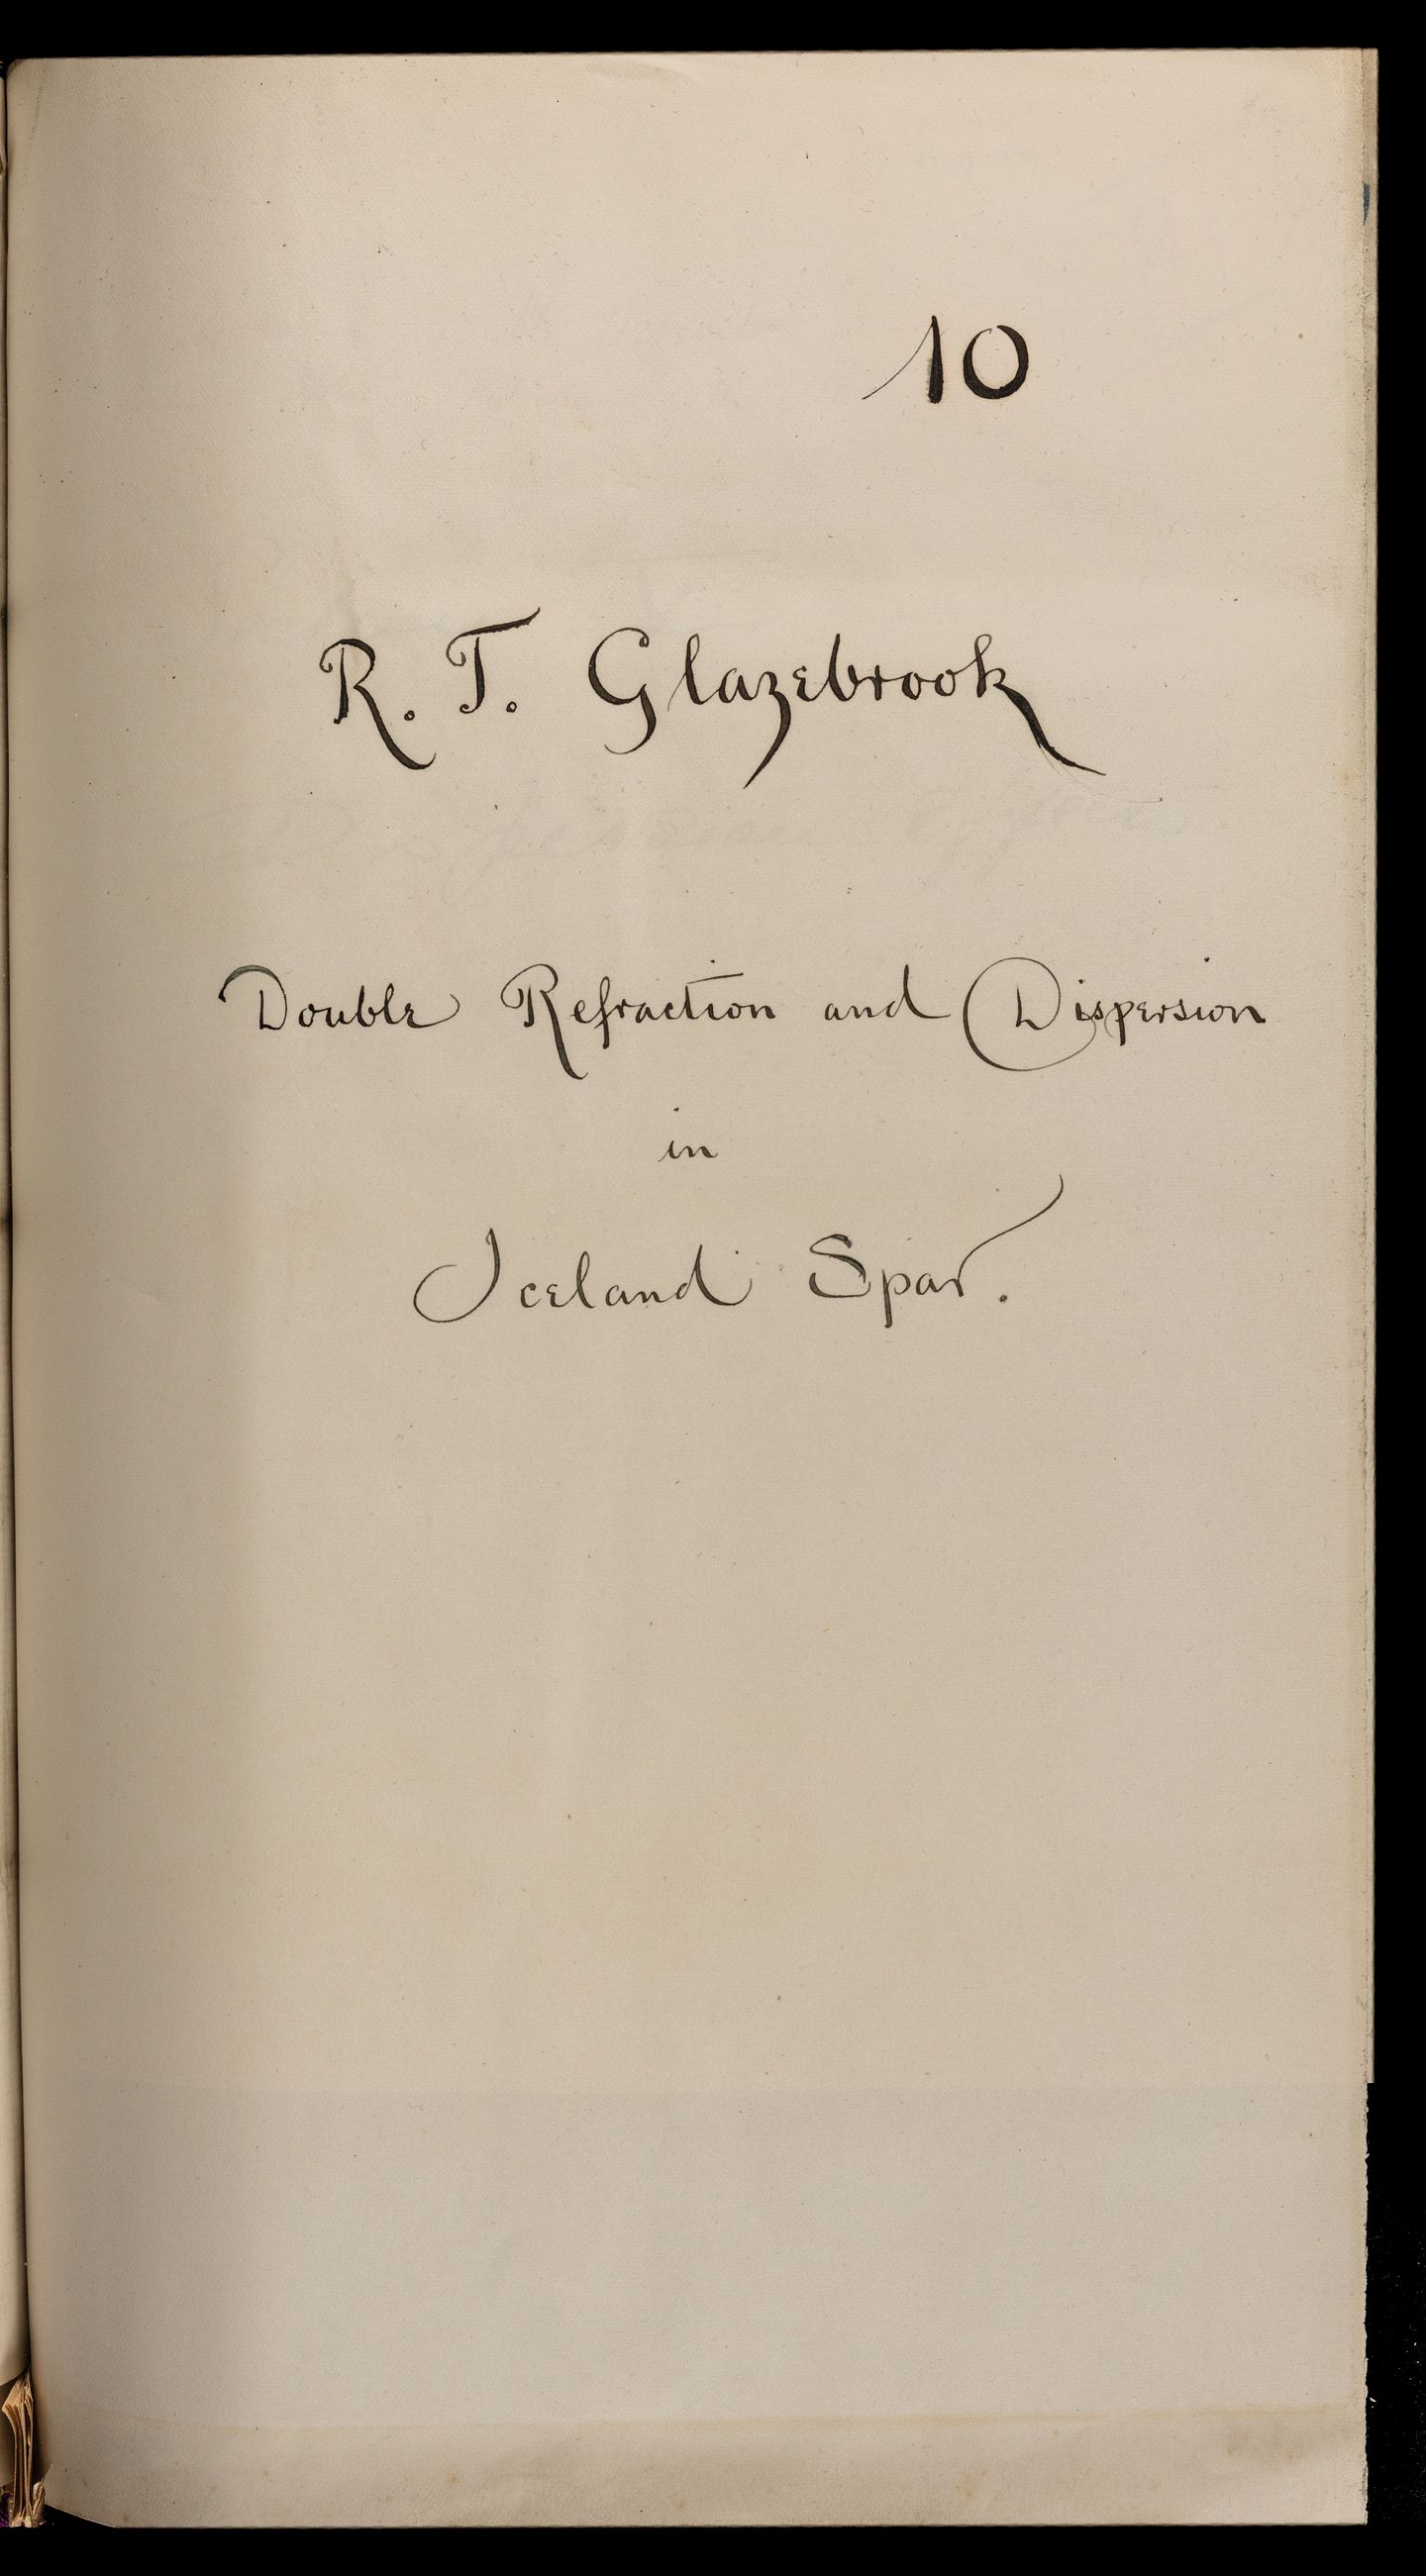 10
R. T. Glazebrook
Double Refraction and Dispersion
in
Iceland Spar.